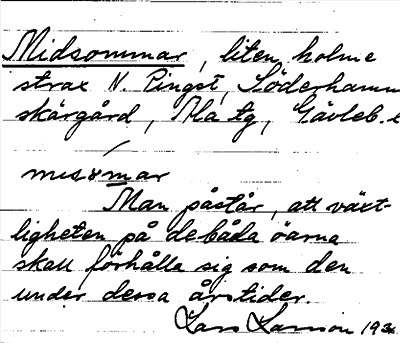 Midsommar, liten holme
strax N. Pingst, Söderhamn
skärgård, Ala tg, Gävleb. l
mısɜmar
Man påstår, att växt-
ligheten på de båda öarna
skall förhålla sig som den
under dessa årstider.
Lars Larsson 193